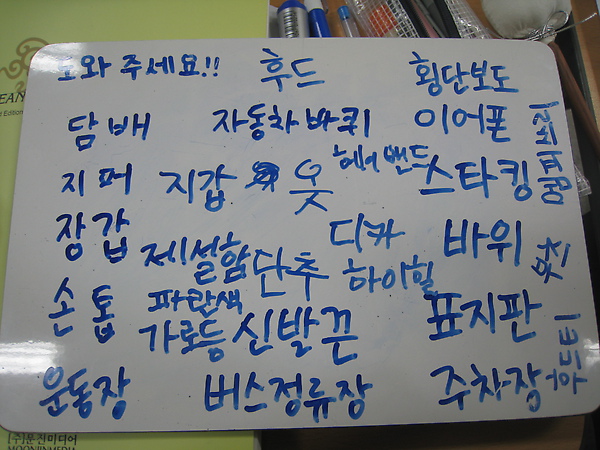 도와 주세요!! 후드 횡단보도
담배 자동차 바퀴 이어폰
지퍼 지갑 옷 헤어밴드 스타킹
장갑 제설함 단추 디카 바위
손톱 파란색 하이힐
가로등 신발끈 표지판
운동장 버스정류장 주차장
곰피쓰리
후드티
EAN
Edition
(주)문진미디어
MOONJINMEDIA